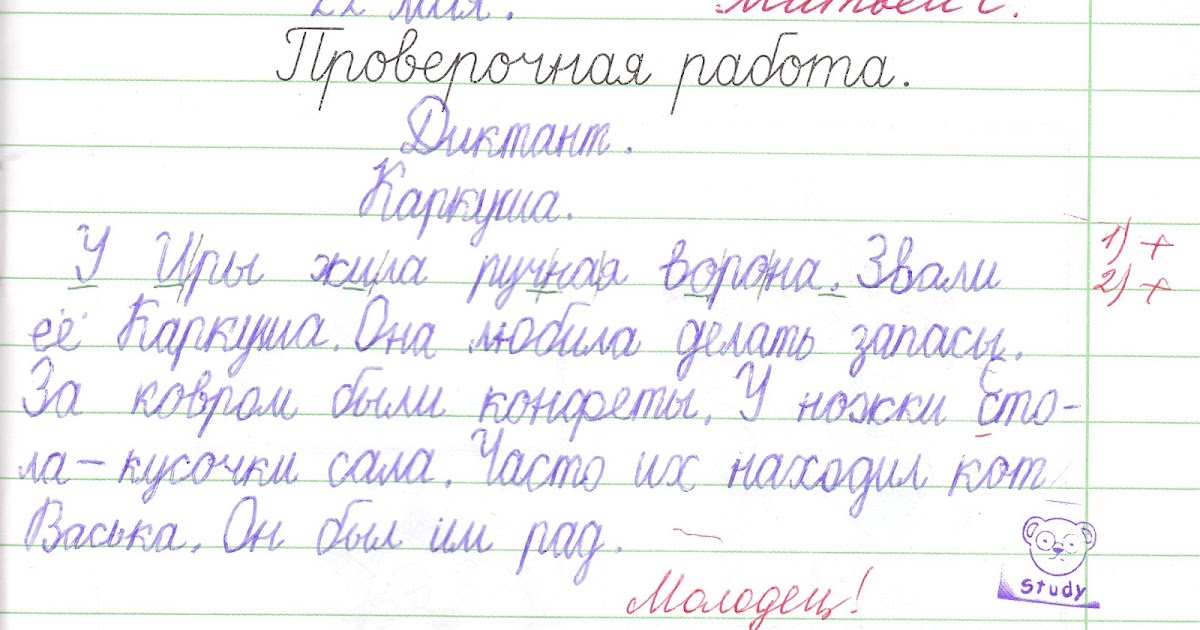 22 мая. Матвей С.
Проверочная работа.
Диктант.
Каркуша.
У Иры жила ручная ворона. Звали
1) +
2) +
её Каркуша. Она любила делать запасы.
За ковром были конфеты. У ножки сто-
ла – кусочки сала. Часто их находил кот
Васька. Он был им рад.
Молодец!
Study